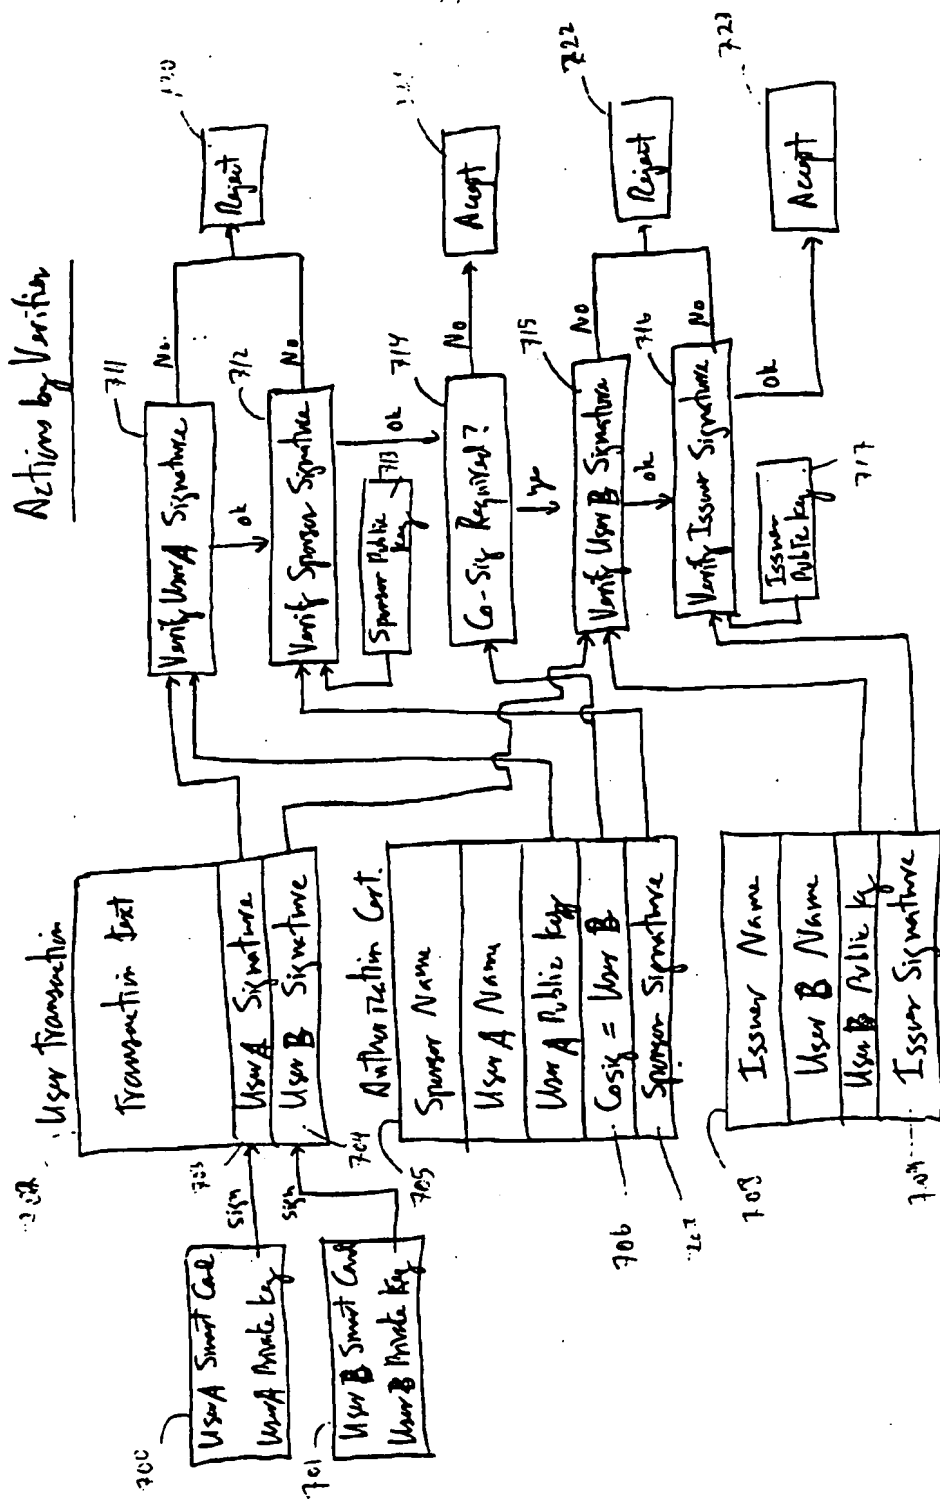 Actions by Verifier
User Transaction
Transaction Text
User A Signature
User B Signature
703
704
700
User A Smart Card
User A Private Key
sign
701
User B Smart Card
User B Private Key
sign
Authorization Cert.
705
Sponsor Name
User A Name
User A Public Key
Cosig = User B
Sponsor Signature
706
708
Issuer Name
User B Name
User B Public Key
Issuer Signature
709
711
Verify User A Signature
No.
ok
712
Verify Sponsor Signature
No
ok
713
Sponsor Public
Key
714
Co-Sig Required?
No
yes
715
Verify User B Signature
No
ok
716
Verify Issuer Signature
No
ok
Issuer
Public Key
717
Reject
Accept
722
Reject
723
Accept